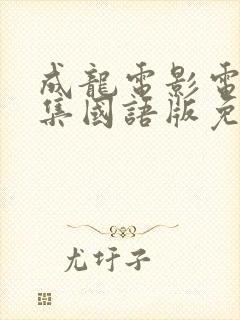 成龍電影電
集國語版免
尤圩子